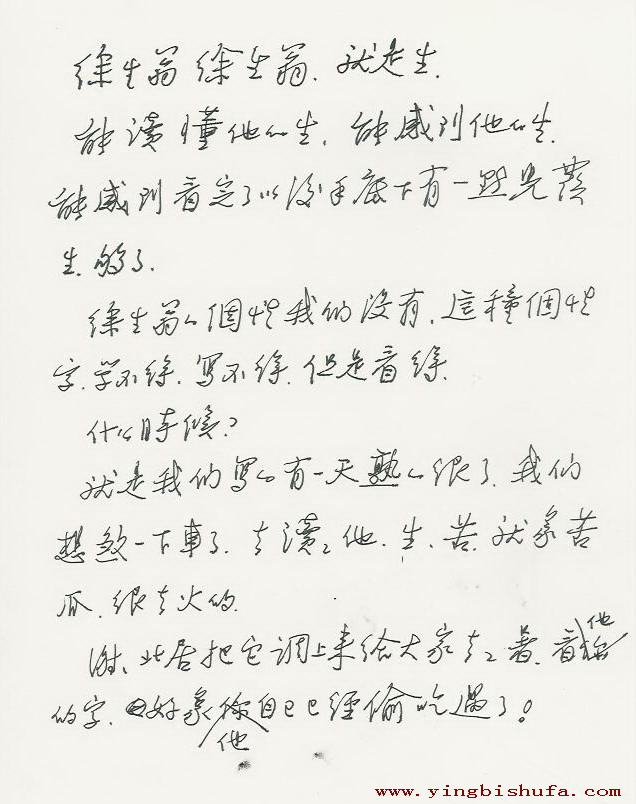 徐生翁徐生翁.就是生.
能讀懂他的生,能感到他的生.
能感到看完了以後手底下有一點兒發
生.够了.
徐生翁的個性我们没有,這種個性
字.学不徐.写不徐.但是看徐.
什么時候?
就是我们写的有一天熟的很了.我们
想煞一下車了.去讀讀他.生.苦.就象苦
瓜.很去火的.
谢.此居把它调上来给大家去去暑.看他
的字.好象他自己已經偷吃過了。
www.yingbishufa.com